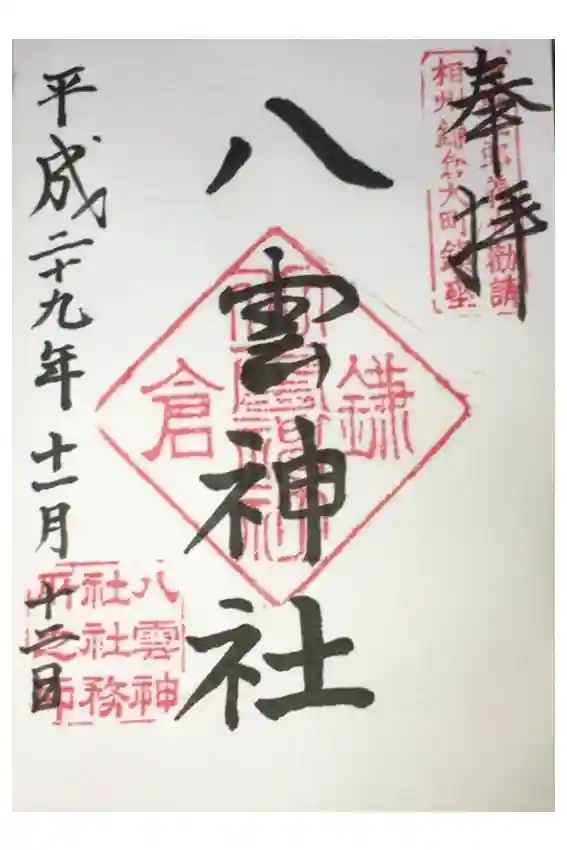 奉拝
相州鎌倉大町鎮座
勧請
八雲神社
鎌
倉
平成二十九年十一月十二日
八雲神
社社務
所之印